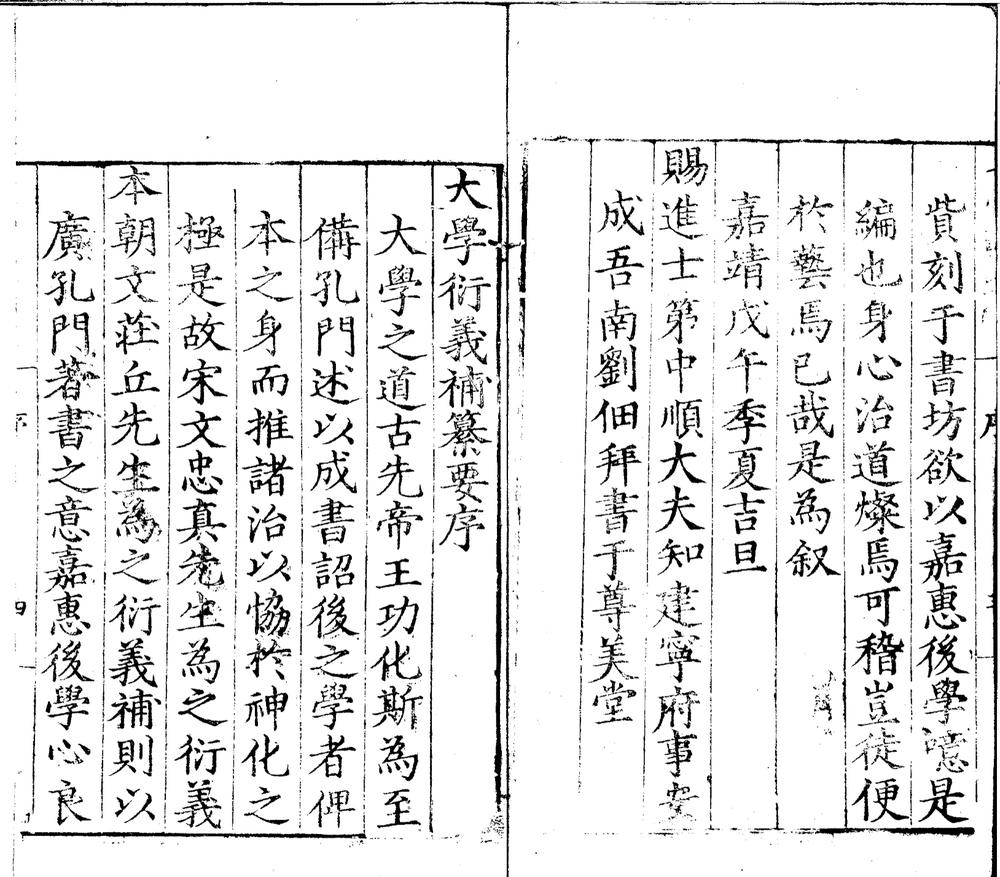 貲刻于書坊欲以嘉惠後學噫是
編也身心治道燦焉可稽豈徒便
於藝焉已哉是為叙
嘉靖戊午季夏吉旦
賜進士第中順大夫知建寧府事安
成吾南劉佃拜書于尊美堂
大學衍義補纂要序
大學之道古先帝王功化斯為至
備孔門述以成書詔後之學者俾
本之身而推諸治以恊於神化之
極是故宋文忠真先生為之衍義
本朝文莊丘先生為之衍義補則以
廣孔門著書之意嘉惠後學心良
序
四